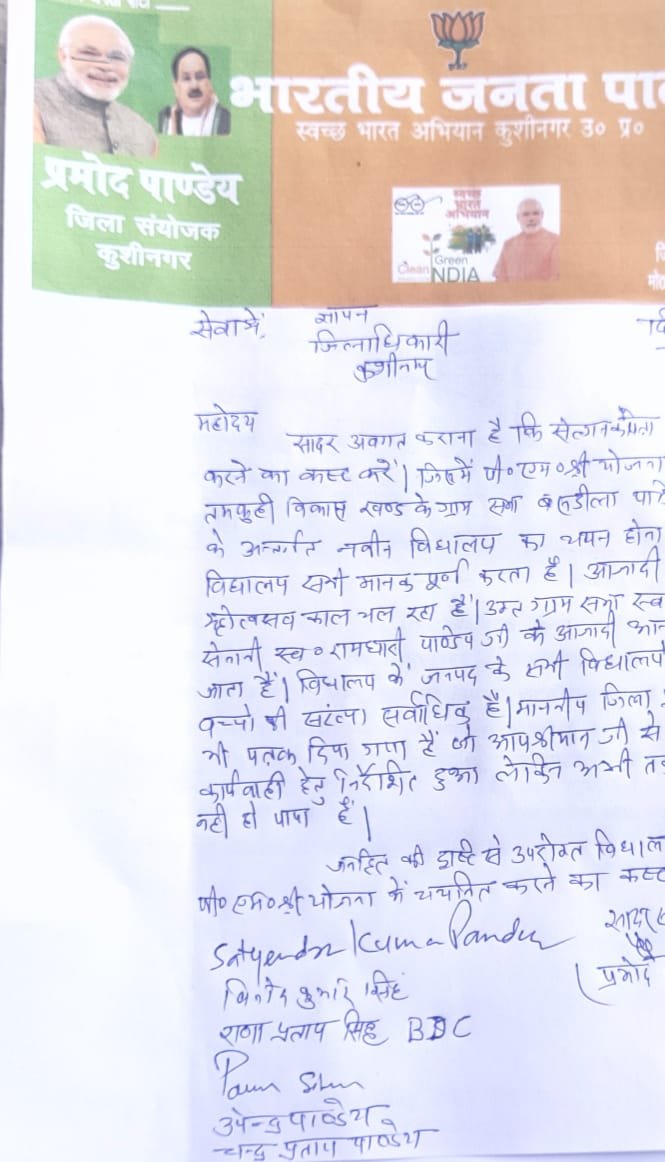 भारतीय जनता पा
स्वच्छ भारत अभियान कुशीनगर उ० प्र०
प्रमोद पाण्डेय
जिला संयोजक
कुशीनगर
स्वच्छ
भारत
अभियान
Clean Green
NDIA
सेवा में, ज्ञापन
जिलाधिकारी
कुशीनगर
महोदय
सादर अवगत कराना है कि
करने का कस्ट करें। जिसमें पी० एम० श्री योजना
तमकुही विकास खण्ड के ग्राम सभा
के अन्तर्गत नवीन विद्यालय का चयन होना
विद्यालय सभी मानक पूर्ण करता है। आजादी
काल चल रहा है। उक्त ग्राम सभा स्व
सेनानी स्व० रामधारी पाण्डेय जी के आजादी
जाता है। विद्यालय के जनपद के सभी विद्यालयो
बच्चो की संख्या सर्वाधिक है। माननीय जिला
भी पत्रक दिया गया है जो आपश्रीमान जी से
कार्यवाही हेतु निर्देशित हुआ लेकिन अभी तक
नही हो पाया है।
जनहित की दृष्टि से उपरोक्त विद्याल
पी० एम० श्री योजना में चयनित करने का कस्ट
सादर
Satyendra Kumar Pandey
(प्रमोद
विनोद कुमार सिंह
राणा प्रताप सिंह BDC
उपेन्द्र पाण्डेय
चन्द्र प्रताप पाण्डेय